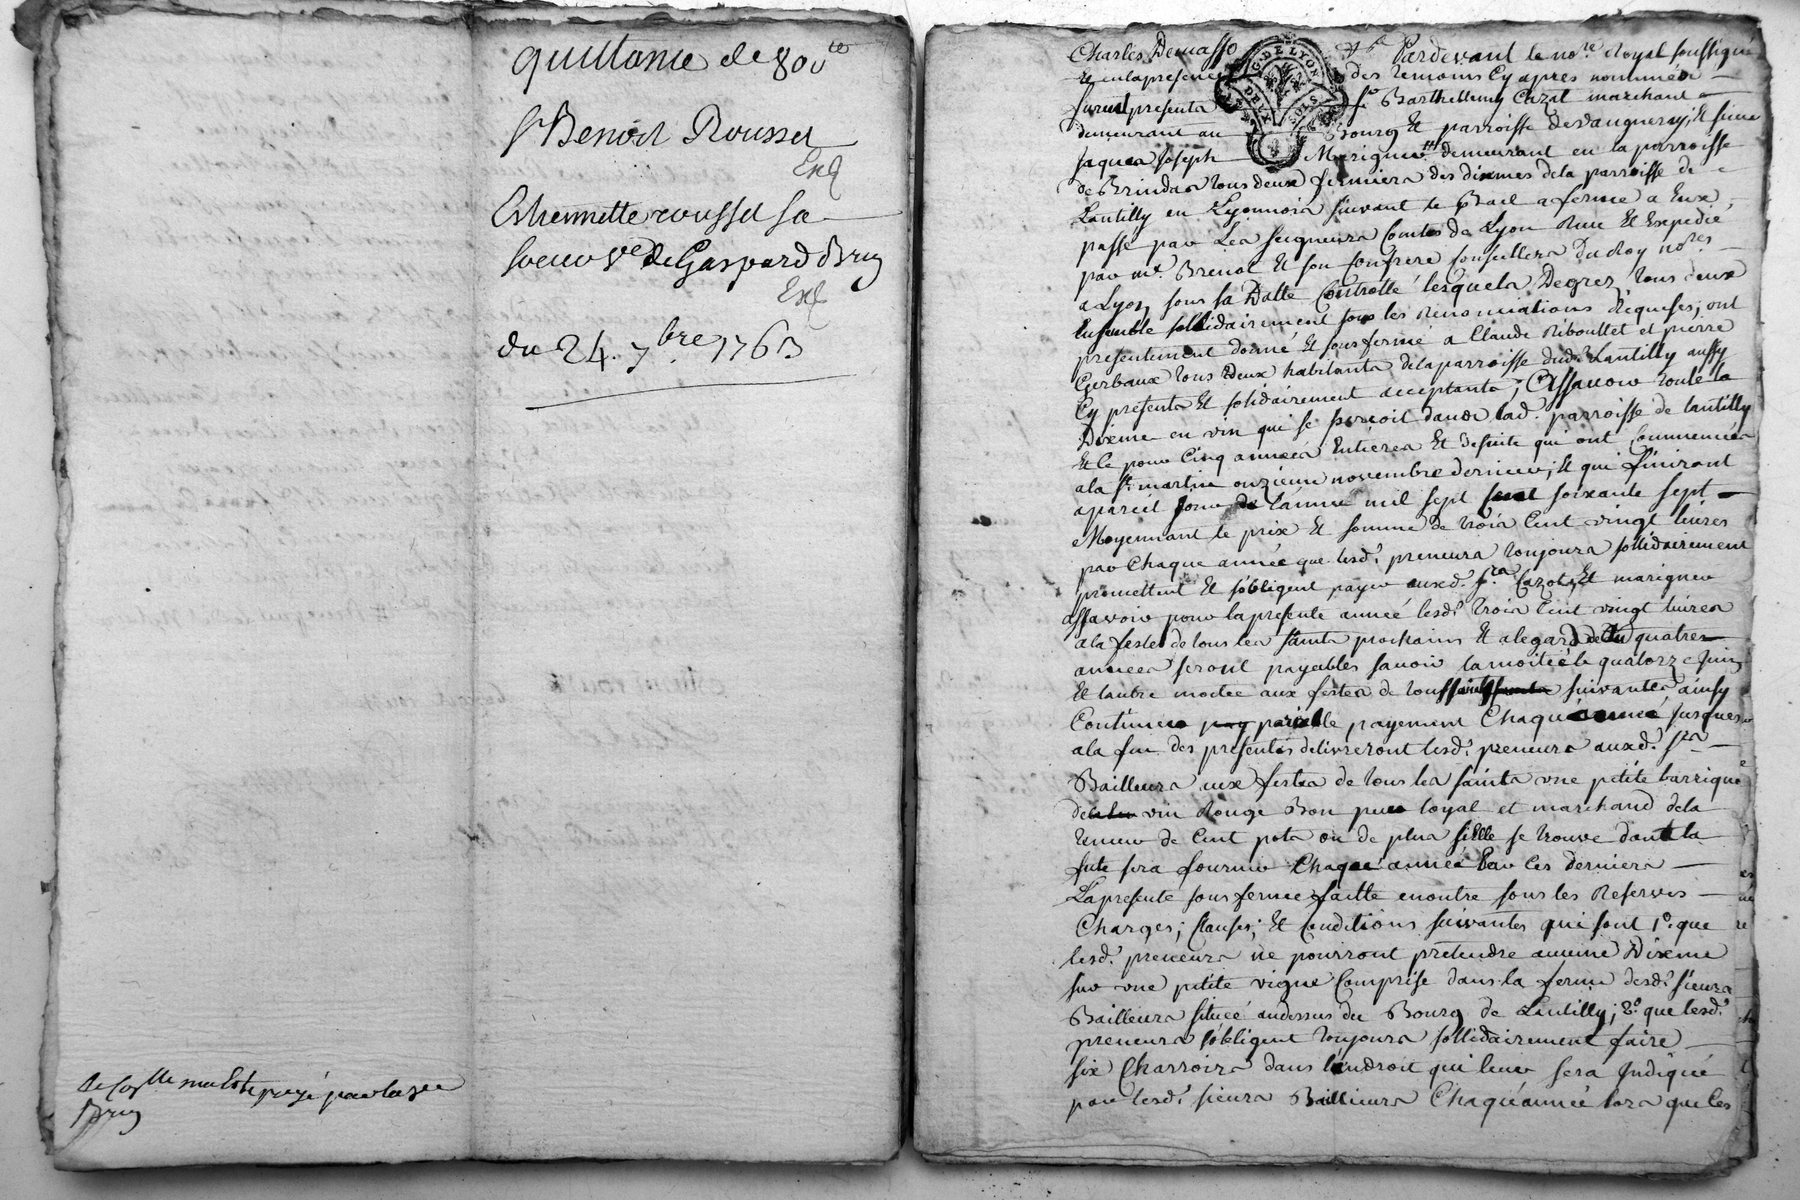 quittance de 80ᵗᵗ
Sʳ Benoît Rousset
Exd
Estiennette rousset sa
soeur vᵉ de Gaspard Brun
Exd
du 24. 7bre 1763
payé par la
Charles Demasso
G. DE LYON
DEUX SOLS
Pardevant le noʳᵉ Royal soussigné
et en la presence des temoins cy apres nommés
furent presents sʳ Barthellemy Cazot marchant
demeurant au Bourg et parroisse de vaugneray, et sieur
jaques joseph Marignier demeurant en la parroisse
de Brindas tous deux fermiers des dixmes de la parroisse de
Lantilly en Lyonnois suivant le Bail a ferme a Eux
passé par Les seigneurs Comtes de Lyon Reçu et Expedié
par mᵉ. Brenot et son confrere conseillers du Roy noʳᵉˢ
a Lyon sous sa Datte Controllé lesquels Degrez tous deux
Ensemble sollidairement sous les Renonciations Requises, ont
présentement donné et sousfermé a Claude Riboullet et pierre
Gerbaux tous deux habitants de la parroisse dudᵗ Lantilly aussy
Cy presents et solidairement acceptants, Assavoir toute la
Dixme en vin qui se perçoit dans lad. parroisse de lantilly
Et ce pour Cinq années Entieres et de suite qui ont Commencées
a la Sᵗ martin onzieme novembre dernier, et qui finiront
a pareil jour de l'année mil sept cent soixante sept
Moyennant le prix et somme de trois Cent vingt livres
par Chaque année que lesdᵗˢ preneurs toujours sollidairement
promettent et s'obligent payer auxd. sʳˢ Cazot, et marignier
assavoir pour la presente année lesdᵗˢ trois Cent vingt livres
a la feste de tous les saints prochains et a legard des quatres
années seront payables savoir la moitié le quatorze juin
Et lautre moitée aux festes de toussaints suivantes, ainsy
Continuer pareille payement Chaque année jusques
a la fin des presentes delivreront lesdᵗˢ preneurs auxd. sʳˢ
Bailleurs aux festes de tous les saints une petite barrique
de vin Rouge Bon pur loyal et marchand de la
teneur de Cent pots ou de plus si Elle se trouve dont la
fute sera fournie Chaque année Par Ces derniers
La presente sousferme faitte enoutre sous les Reserves
Charges, Clauses, Et Conditions suivantes qui sont 1º. que
lesdᵗˢ preneurs ne pourront pretendre aucune Dixme
sur une petite vigne Comprise dans la ferme desdᵗˢ sieurs
Bailleurs située audessus du Bourg de Lantilly, 2º. que lesdᵗˢ
preneurs s'obligent toujours sollidairement faire
six Charroirs dans l'endroit qui leur sera Indiqué
par lesdᵗˢ sieurs Bailleurs Chaque année lors que les